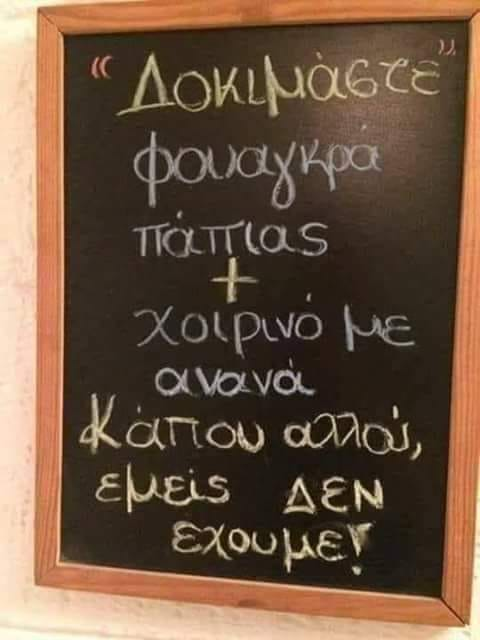 " Δοκιμάστε "
φουαγκρά
πάπιας
+
χοιρινό με
ανανά
Κάπου αλλού,
εμείς ΔΕΝ
έχουμε!